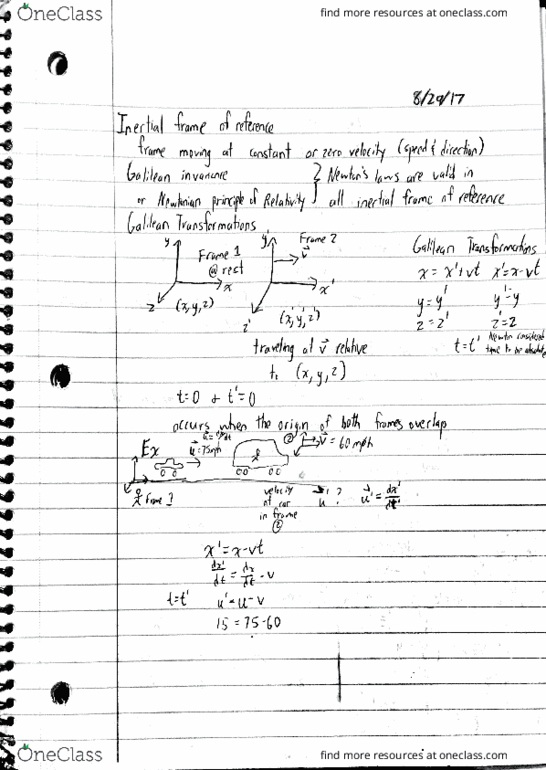 OneClass
find more resources at oneclass.com
8/29/17
Inertial frame of reference
frame moving at constant or zero velocity (speed & direction)
Galilean invariance } Newton's laws are valid in
or Newtonian principle of Relativity } all inertial frame of reference
Galilean Transformations
y
Frame 1
@ rest
x
z
(x,y,z)
y'
Frame 2
v
x'
z'
(x',y',z')
traveling at v relative
to (x,y,z)
Galilean Transformations
x = x'+vt x'=x-vt
y=y' y'=y
z=z' z'=z
t=t' Newton considered
time to be absolute
t=0 & t'=0
occurs when the origin of both frames overlap
Ex
u=75mph
②
v=60mph
Frame 1
velocity
of car
in frame
②
u'? u'=dx'/dt'
x'=x-vt
dx'/dt=dx/dt-v
t=t' u'=u-v
15=75-60
OneClass
find more resources at oneclass.com